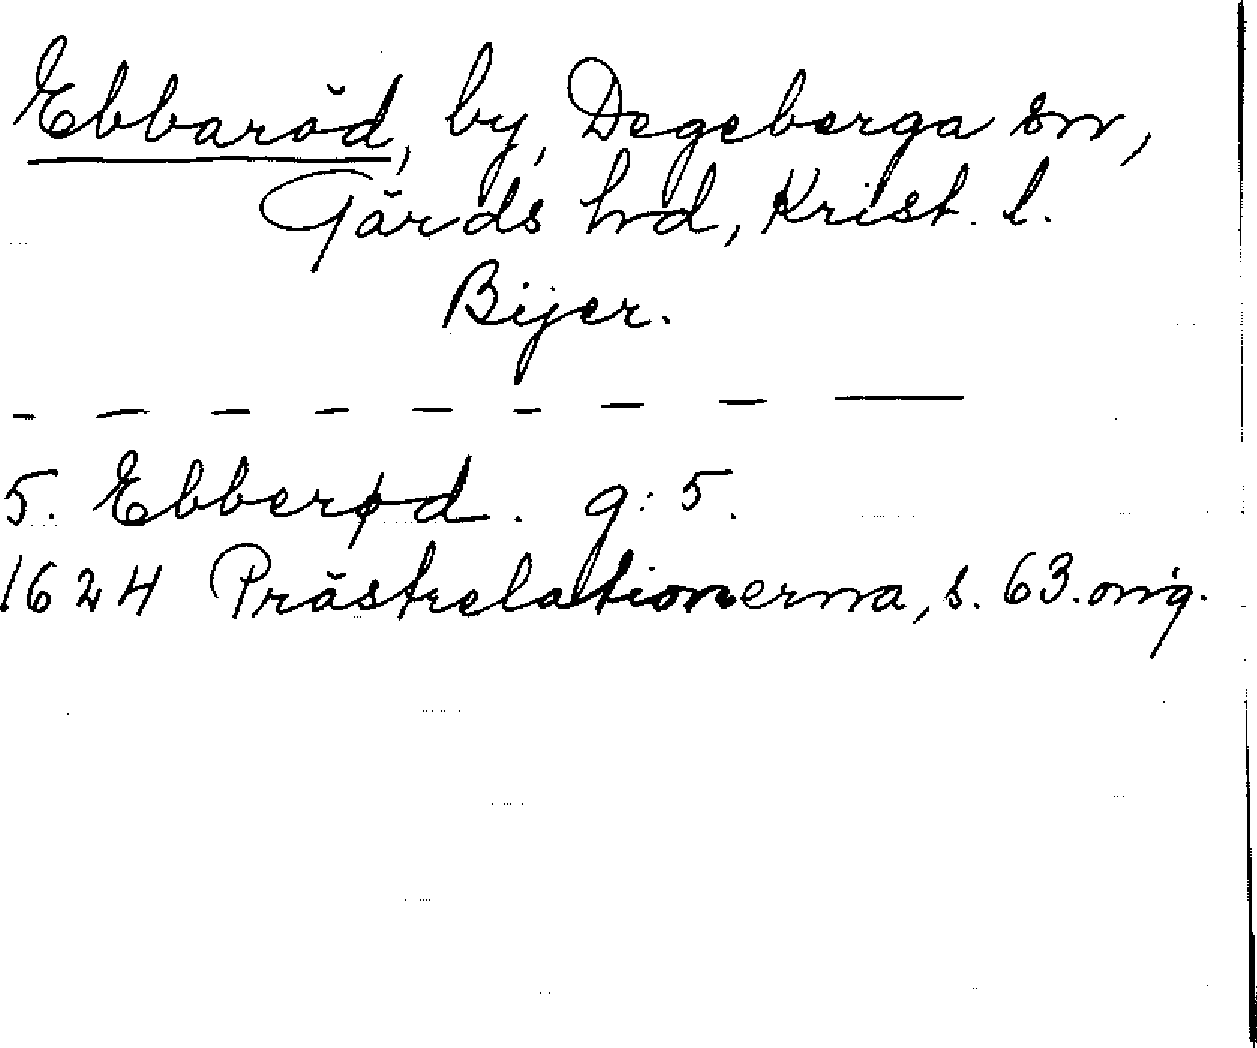 Ebbaröd, by, Degeberga sn,
Gärds hrd, Krist. l.
Bijer.
5. Ebberød. g: 5.
1624 Prästrelationerna, s. 63. orig.